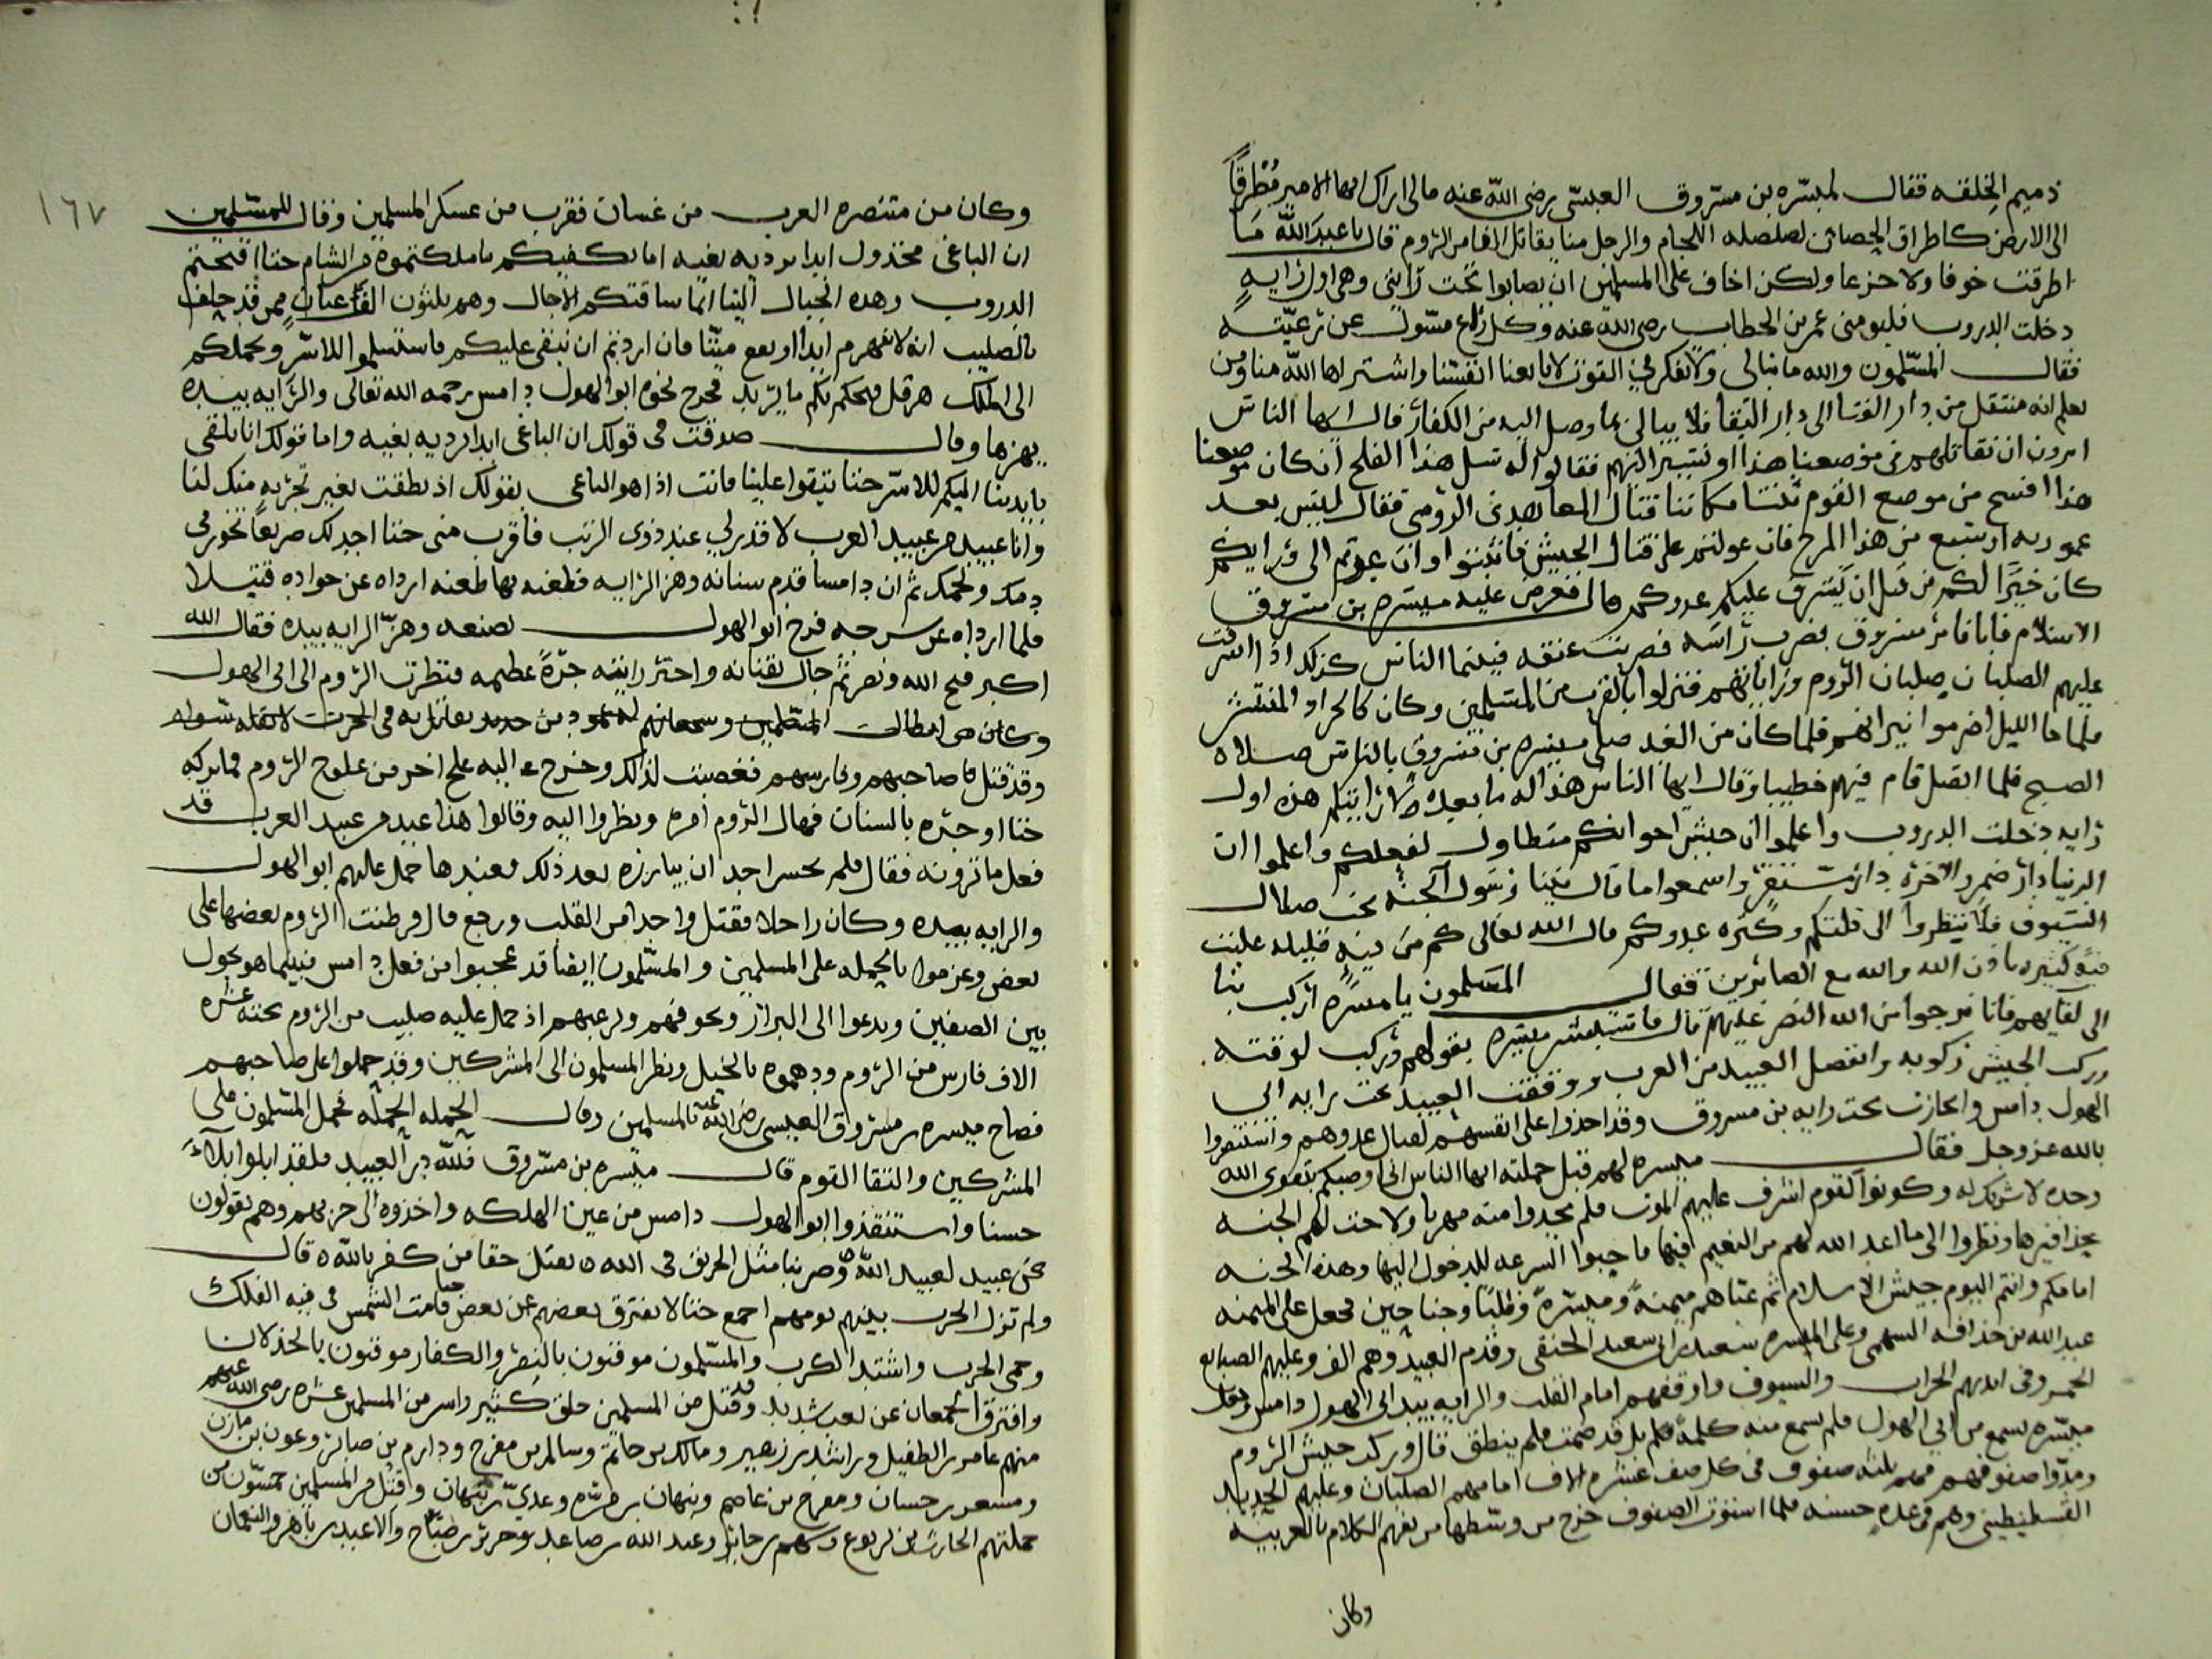 ذميم الخلقه فقال لميسره بن مسروق العبسى رضى الله عنه مالى اراك ايها الامير مطرقا
الى الارض كاطراق الحصان لصلصله اللجام والرجل منا يقاتل الفا من الروم قال يا عبد الله ما
اطرقت خوفا ولا جزعا ولكن اخاف على المسلمين ان يصابوا تحت رايتى وهى اول رايه
دخلت الدروب فيلومنى عمر بن الخطاب رضى الله عنه وكل راع مسول عن رعيته
فقال المسلمون والله ما نبالى ولا نفكر فى الفوت لانا بعنا انفسنا واشترلها الله منا ومن
يعلم انه منتقل من دار الفنا الى دار البقا فلا يبالى بما وصل اليه من الكفار قال ايها الناس
اترون ان نقاتلهم فى موضعنا هذا او نسير اليهم فقالوا له سل هذا العلج ان كان موضعنا
هذا افسح من موضع القوم ثبتنا مكاننا فقال المعاهدى الرومى فقال ليس بعد
عموريه اوسع من هذا المرج فان عولتم على قتال الجيش فاثبتوا وان عدتم الى ورايكم
كان خيرا لكم من قبل ان يشرف عليكم عدوكم قال فعرض عليه ميسره بن مسروق
الاسلام فابا فامر مسروق بضرب راسه فضربت عنقه فبينما الناس كذلك اذ اشرفت
عليهم الصلبان صلبان الروم وراياتهم فنزلوا بالقرب من المسلمين وكان كالجراد المنتشر
فلما جا الليل اضرموا نيرانهم فلما كان من الغد صلى ميسره بن مسروق بالناس صلاه
الصبح فلما انفتل قام فيهم خطيبا وقال ايها الناس هذا له ما بعده لان رايتكم هذه اول
رايه دخلت الدروب واعلموا ان جيش اخوانكم متطاول لفعلكم واعلموا ان
الدنيا دار ممر والاخره دار مستقر واسمعوا ما قال نبينا رسول الله الجنه تحت ضلال
السيوف فلا ينظروا الى قلتكم وكثره عدوكم قال الله تعالى كم من فيه قليله غلبت
فيه كثيره باذن الله والله مع الصابرين فقال المسلمون يا ميسره اركب بنا
الى لقايهم فانا نرجوا من الله النصر عليهم قال فاستبشر ميسره بقولهم وركب لوقته
وركب الجيش لركوبه وانفصل العبيد من العرب ووقفت العبيد تحت رايه ابى
الهول دامس وانحازت تحت رايه بن مسروق وقد اخذوا على انفسهم لقتال عدوهم واستنصروا
بالله عز وجل فقال ميسره لهم قبل حملته ايها الناس انى اوصيكم بتقوى الله
وحده لا شريك له وكونوا كقوم اشرف عليهم الموت فلم يجدوا منه مهربا ولاحت لهم الجنه
بحذافيرها ونظروا الى ما اعد الله لهم من النعيم فيها فاحبوا السرعه للدخول اليها وهذه الجنه
امامكم وانتم اليوم جيش الاسلام ثم عباهم ميمنه وميسره وقلبا وجناحين فجعل على الميمنه
عبد الله بن حذافه السهمى وعلى الميسره سعيد بن ابى سعيد الحنفى وقدم العبيد وهم الف وعليهم الصبابع
الحمر وفى ايديهم الحراب والسيوف واوقفهم امام القلب والرايه بيد ابى الهول دامس وجعل
ميسره يسمع من ابى الهول فلم يسمع منه كلمه فلم بل قد صمت فلم ينطق قال وركب جيش الروم
ومدوا صفوفهم فهم ثلثه صفوف فى كل صف عشره الاف امامهم الصلبان وعليهم الحديد
القسطيطينى وهم فى عده حسنه فلما استوت الصفوف خرج من وسطها من يفهم الكلام بالعربيه
وكان
١٦٧
وكان من متنصره العرب من غسان فقرب من عسكر المسلمين وقال للمسلمين
ان الباغى مخذول ابدا يرديه بغيه اما يكفيكم ما ملكتموه من الشام حتا اقتحمتم
الدروب وهذه الجبال الينا انما ساقتكم الاجال وهم ثلثون الف عنان ممن قد حلف
بالصليب انه لا ينهزم ابدا او يقع ميتا فان اردتم ان نبقى عليكم فاستسلموا للاسر ونحملكم
الى الملك هرقل فيحكم بكم ما يريد فخرج نحوه ابو الهول دامس رحمه الله تعالى والرايه بيده
يهزها وقال صدقت فى قولك ان الباغى ابدا يرديه بغيه واما قولك انا نلقى
بايدينا اليكم للاسر حتا تبقوا علينا فانت اذا هو الباغى بقولك اذ نطقت بغير تجربه منك لنا
وانا عبيد من عبيد العرب لا قدر لى عند ذوى الرتب فاقرب منى حتا اجدلك صريعا تخور فى
دمك ولحمك ثم ان دامسا قدم سنانه وهز الرايه فطعنه بها طعنه ارداه عن جواده قتيلا
فلما ارداه عن سرجه فرح ابو الهول بصنعه وهز الرايه بيده فقال الله
اكبر فتح الله ونصر ثم جال بقناته واحتز رايته جزه عظيمه فنظرت الروم الى ابى الهول
وكان من ابطال المسلمين وشجعانهم
وقد قتل صاحبهم وفارسهم فغصبت لذلك وخرج اليه علج اخر من علوج الروم فما تركه
حتا اوجره بالسنان فهال الروم امره ونظروا اليه وقالوا هذا عبد من عبيد العرب قد
فعل ما ترونه فقال فلم يجسر احد ان يبارزه بعد ذلك فعندها حمل عليهم ابو الهول
والرايه بيده وكان راجلا فقتل واحدا من القلب ورجع قال فرطنت الروم بعضها على
بعض وعزموا بالحمله على المسلمين والمسلمون ايضا قد عجبوا من فعل دامس فبينما هو يجول
بين الصفين ويدعوا الى البراز ويخوفهم ويرعبهم اذ حمل عليه صليب من الروم تحته عشره
الاف فارس من الروم ودهموه بالخيل ونظر المسلمون الى المشركين وقد حملوا على صاحبهم
فصاح ميسره بن مسروق العبسى رضى الله عنه بالمسلمين وقال الحمله الحمله فحمل المسلمون على
المشركين والتقا القوم قال ميسره بن مسروق فلله در العبيد فلقد ابلوا بلاء
حسنا واستنقذوا ابو الهول دامس من عين الهلكه واخذوه الى حزبهم وهم يقولون
نحن عبيد لعبيد الله وضربنا مثل الحريق فى الله نقتل حقا من كفر بالله قال
ولم تزل الحرب بينهم يومهم اجمع حتا لا يفترق بعضهم عن بعض حتا قامت الشمس فى قبه الفلك
وحمى الحرب واشتد الكرب والمسلمون موقنون بالنصر والكفار موقنون بالخذلان
وافترق الجمعان عن تعب شديد وقد قتل من المسلمين خلق كثير واسر من المسلمين عشره رضى الله عنهم
منهم عامر بن الطفيل وراشد بن زهير ومالك بن حاتم وسالم بن مفرح ودارم بن صابر وعون بن مازن
ومسعر بن حسان ومفرح بن عاصم ونبهان بن مره وعدى بن نبهان وقتل من المسلمين خمسون من
جملتهم الحارث بن يربوع وسهم بن جابر وعبد الله بن صاعد وجرير بن صباح والاعيد بن باهر والنعمان